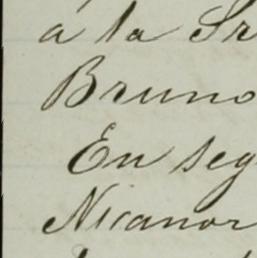 a la Sr
Bruno
En seg
Nicanor